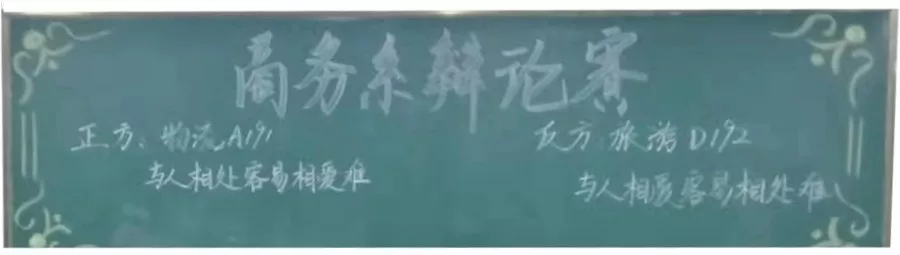 商务系辩论赛
正方：物流A191
与人相处容易相爱难
反方：旅游D192
与人相爱容易相处难